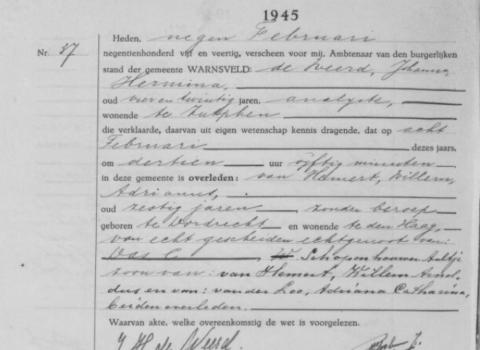 1945
Heden, negen Februari
Nr. 37 negentienhonderd vijf en veertig, verscheen voor mij, Ambtenaar van den burgerlijken
stand der gemeente WARNSVELD: de Weerd, Johanna
Hermina,
oud vier en twintig jaren, analyste,
wonende te Zutphen
die verklaarde, daarvan uit eigen wetenschap kennis dragende, dat op acht
Februari dezes jaars,
om dertien uur vijftig minuten
in deze gemeente is overleden: van Hemert, Willem
oud zestig jaren, zonder beroep
geboren te Dordrecht en wonende te den Haag,
van echt gescheiden echtgenoot van:
Schopenhouer Aaltje
zoon van: van Hemert, Willem Arnol-
dus en van: van der Loo, Adriana Catharina,
beiden overleden.
Waarvan akte, welke overeenkomstig de wet is voorgelezen.
J H de Weerd.